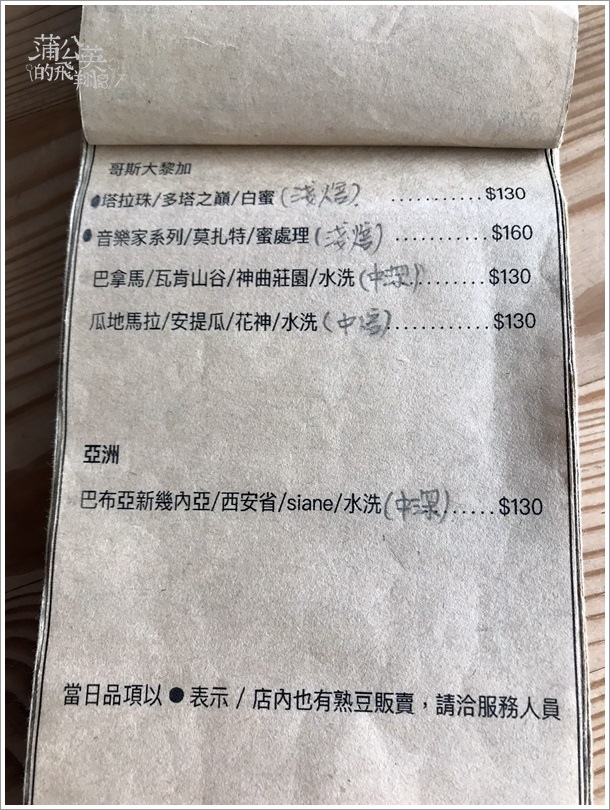 蒲公英
的飛翔
哥斯大黎加
●塔拉珠/多塔之巔/白蜜(淺焙)...........$130
●音樂家系列/莫扎特/蜜處理(淺焙)...........$160
巴拿馬/瓦肯山谷/神曲莊園/水洗(中深)........$130
瓜地馬拉/安提瓜/花神/水洗(中焙)............$130
亞洲
巴布亞新幾內亞/西安省/siane/水洗(中深).....$130
當日品項以●表示/店內也有熟豆販賣，請洽服務人員